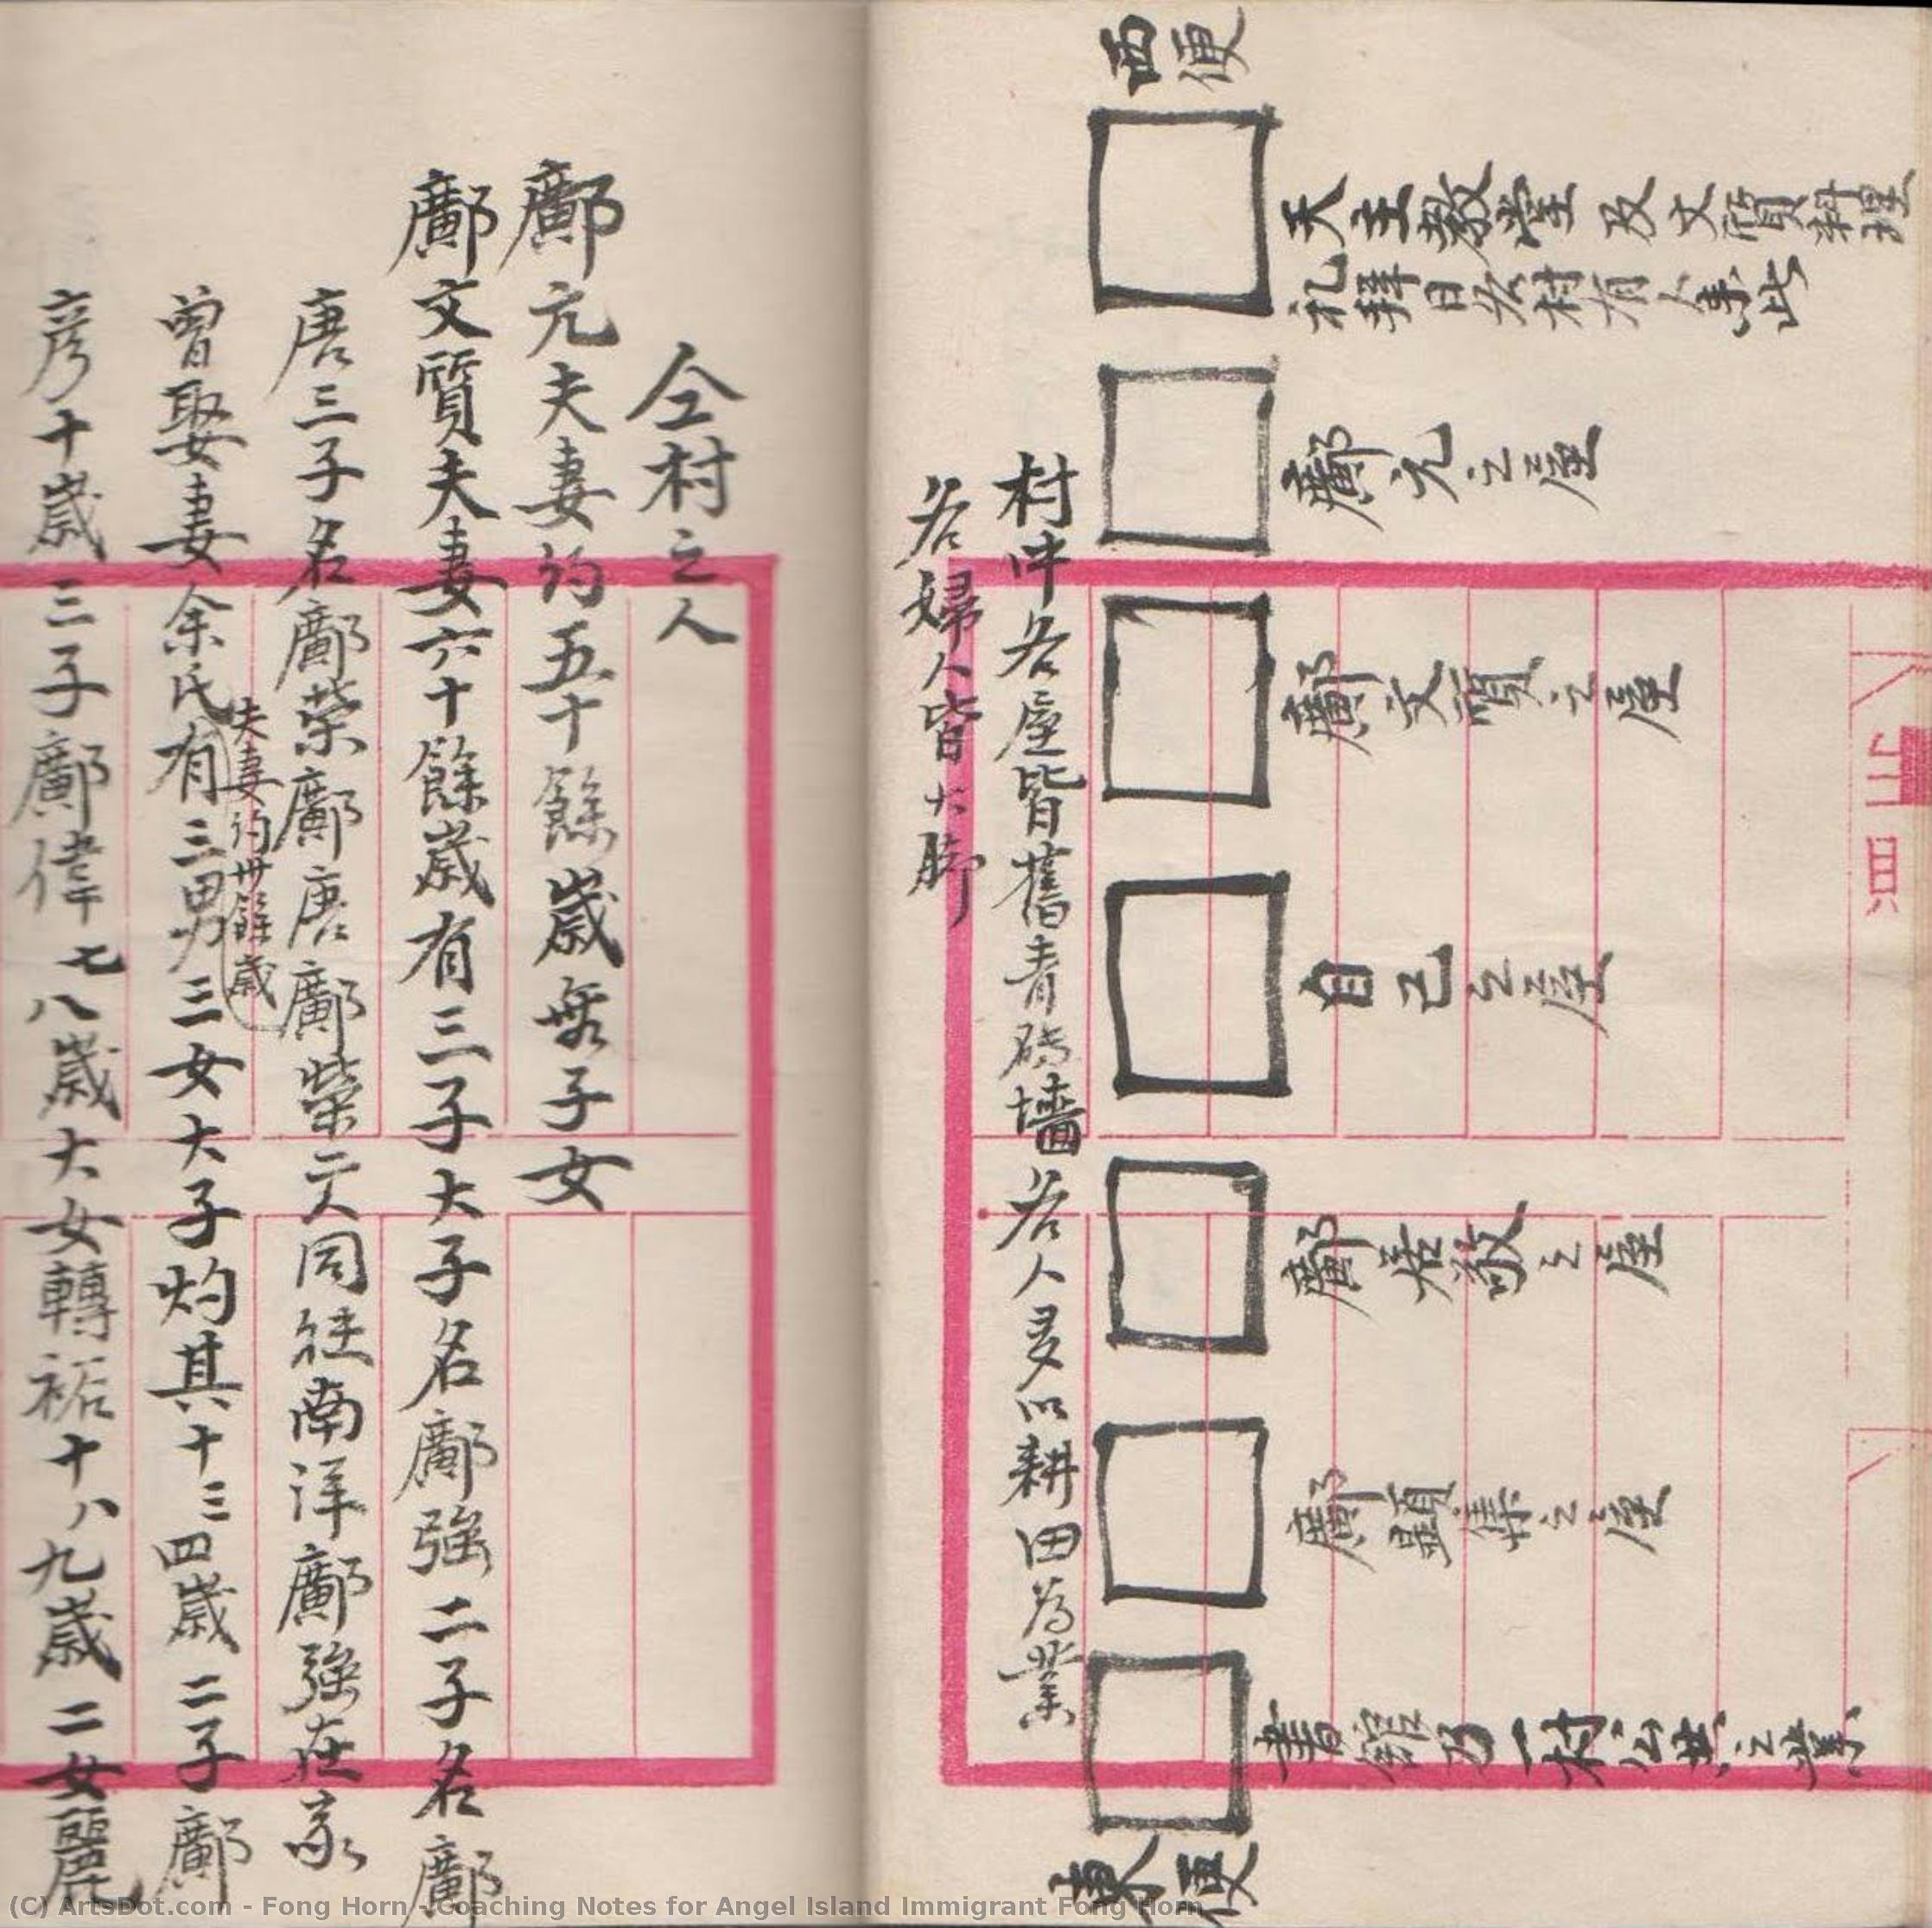 西便
天主教堂 及文質料理
礼拜日各村有人來此
鄺亢之屋
鄺文質之屋
自己之屋
鄺居敬之屋
鄺顕集之屋
書館乃一村公共之業
東便
村中各屋皆舊青磚墻各人多以耕田為業
各婦人皆大脚
仝村之人
鄺亢夫妻約五十餘歲無子女
鄺文質夫妻六十餘歲有三子大子名鄺強二子名鄺
唐三子名鄺柴鄺唐鄺柴二人同往南洋鄺強在家
夫妻約卅餘歲
曾娶妻余氏有三男三女大子灼其十三四歲二子鄺
彦十歲三子鄺偉七八歲大女轉裕十八九歲二女麗
(C) ArtsDot.com - Fong Horn - Coaching Notes for Angel Island Immigrant Fong Horn